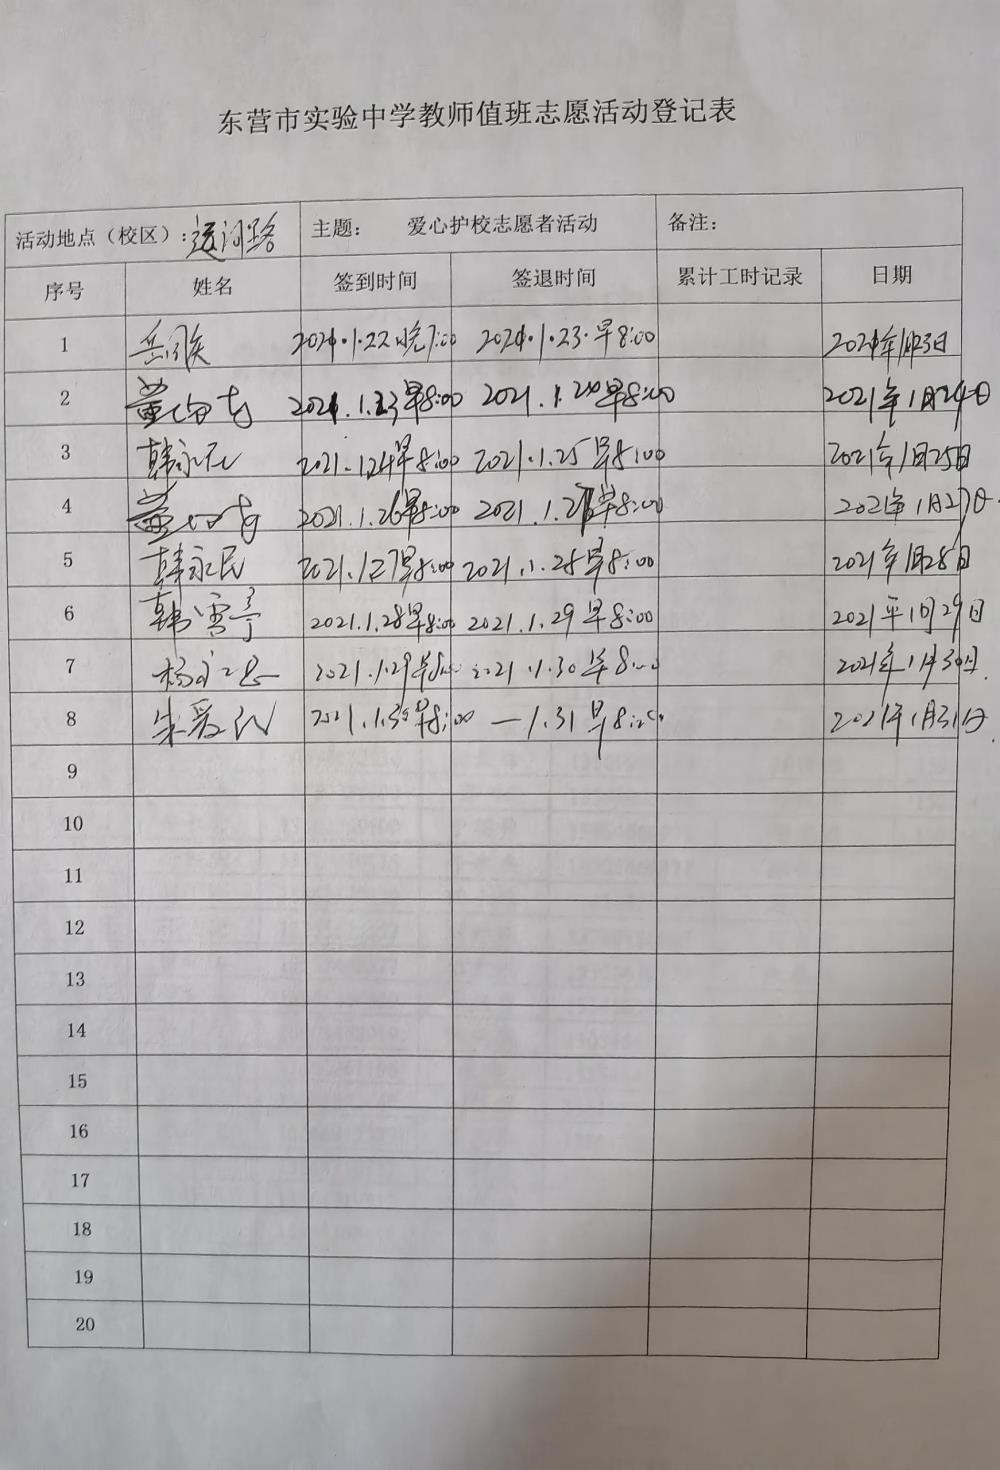 东营市实验中学教师值班志愿活动登记表
活动地点（校区）：运河路 主题： 爱心护校志愿者活动 备注：
序号 姓名 签到时间 签退时间 累计工时记录 日期
1 2021.1.22晚7:00 2021.1.23.早8:00 2021年1月23日
2 2021.1.23早8:00 2021.1.24早8:00 2021年1月24日
3 韩永民 2021.1.24早8:00 2021.1.25早8:00 2021年1月25日
4 2021.1.26早8:00 2021.1.27早8:00 2021年1月27日
5 韩永民 2021.1.27早8:00 2021.1.28早8:00 2021年1月28日
6 韩雪亭 2021.1.28早8:00 2021.1.29早8:00 2021年1月29日
7 2021.1.29早8:00 2021.1.30早8:00 2021年1月30日.
8 朱爱民 2021.1.30早8:00 —1.31早8:00 2021年1月31日.
9
10
11
12
13
14
15
16
17
18
19
20